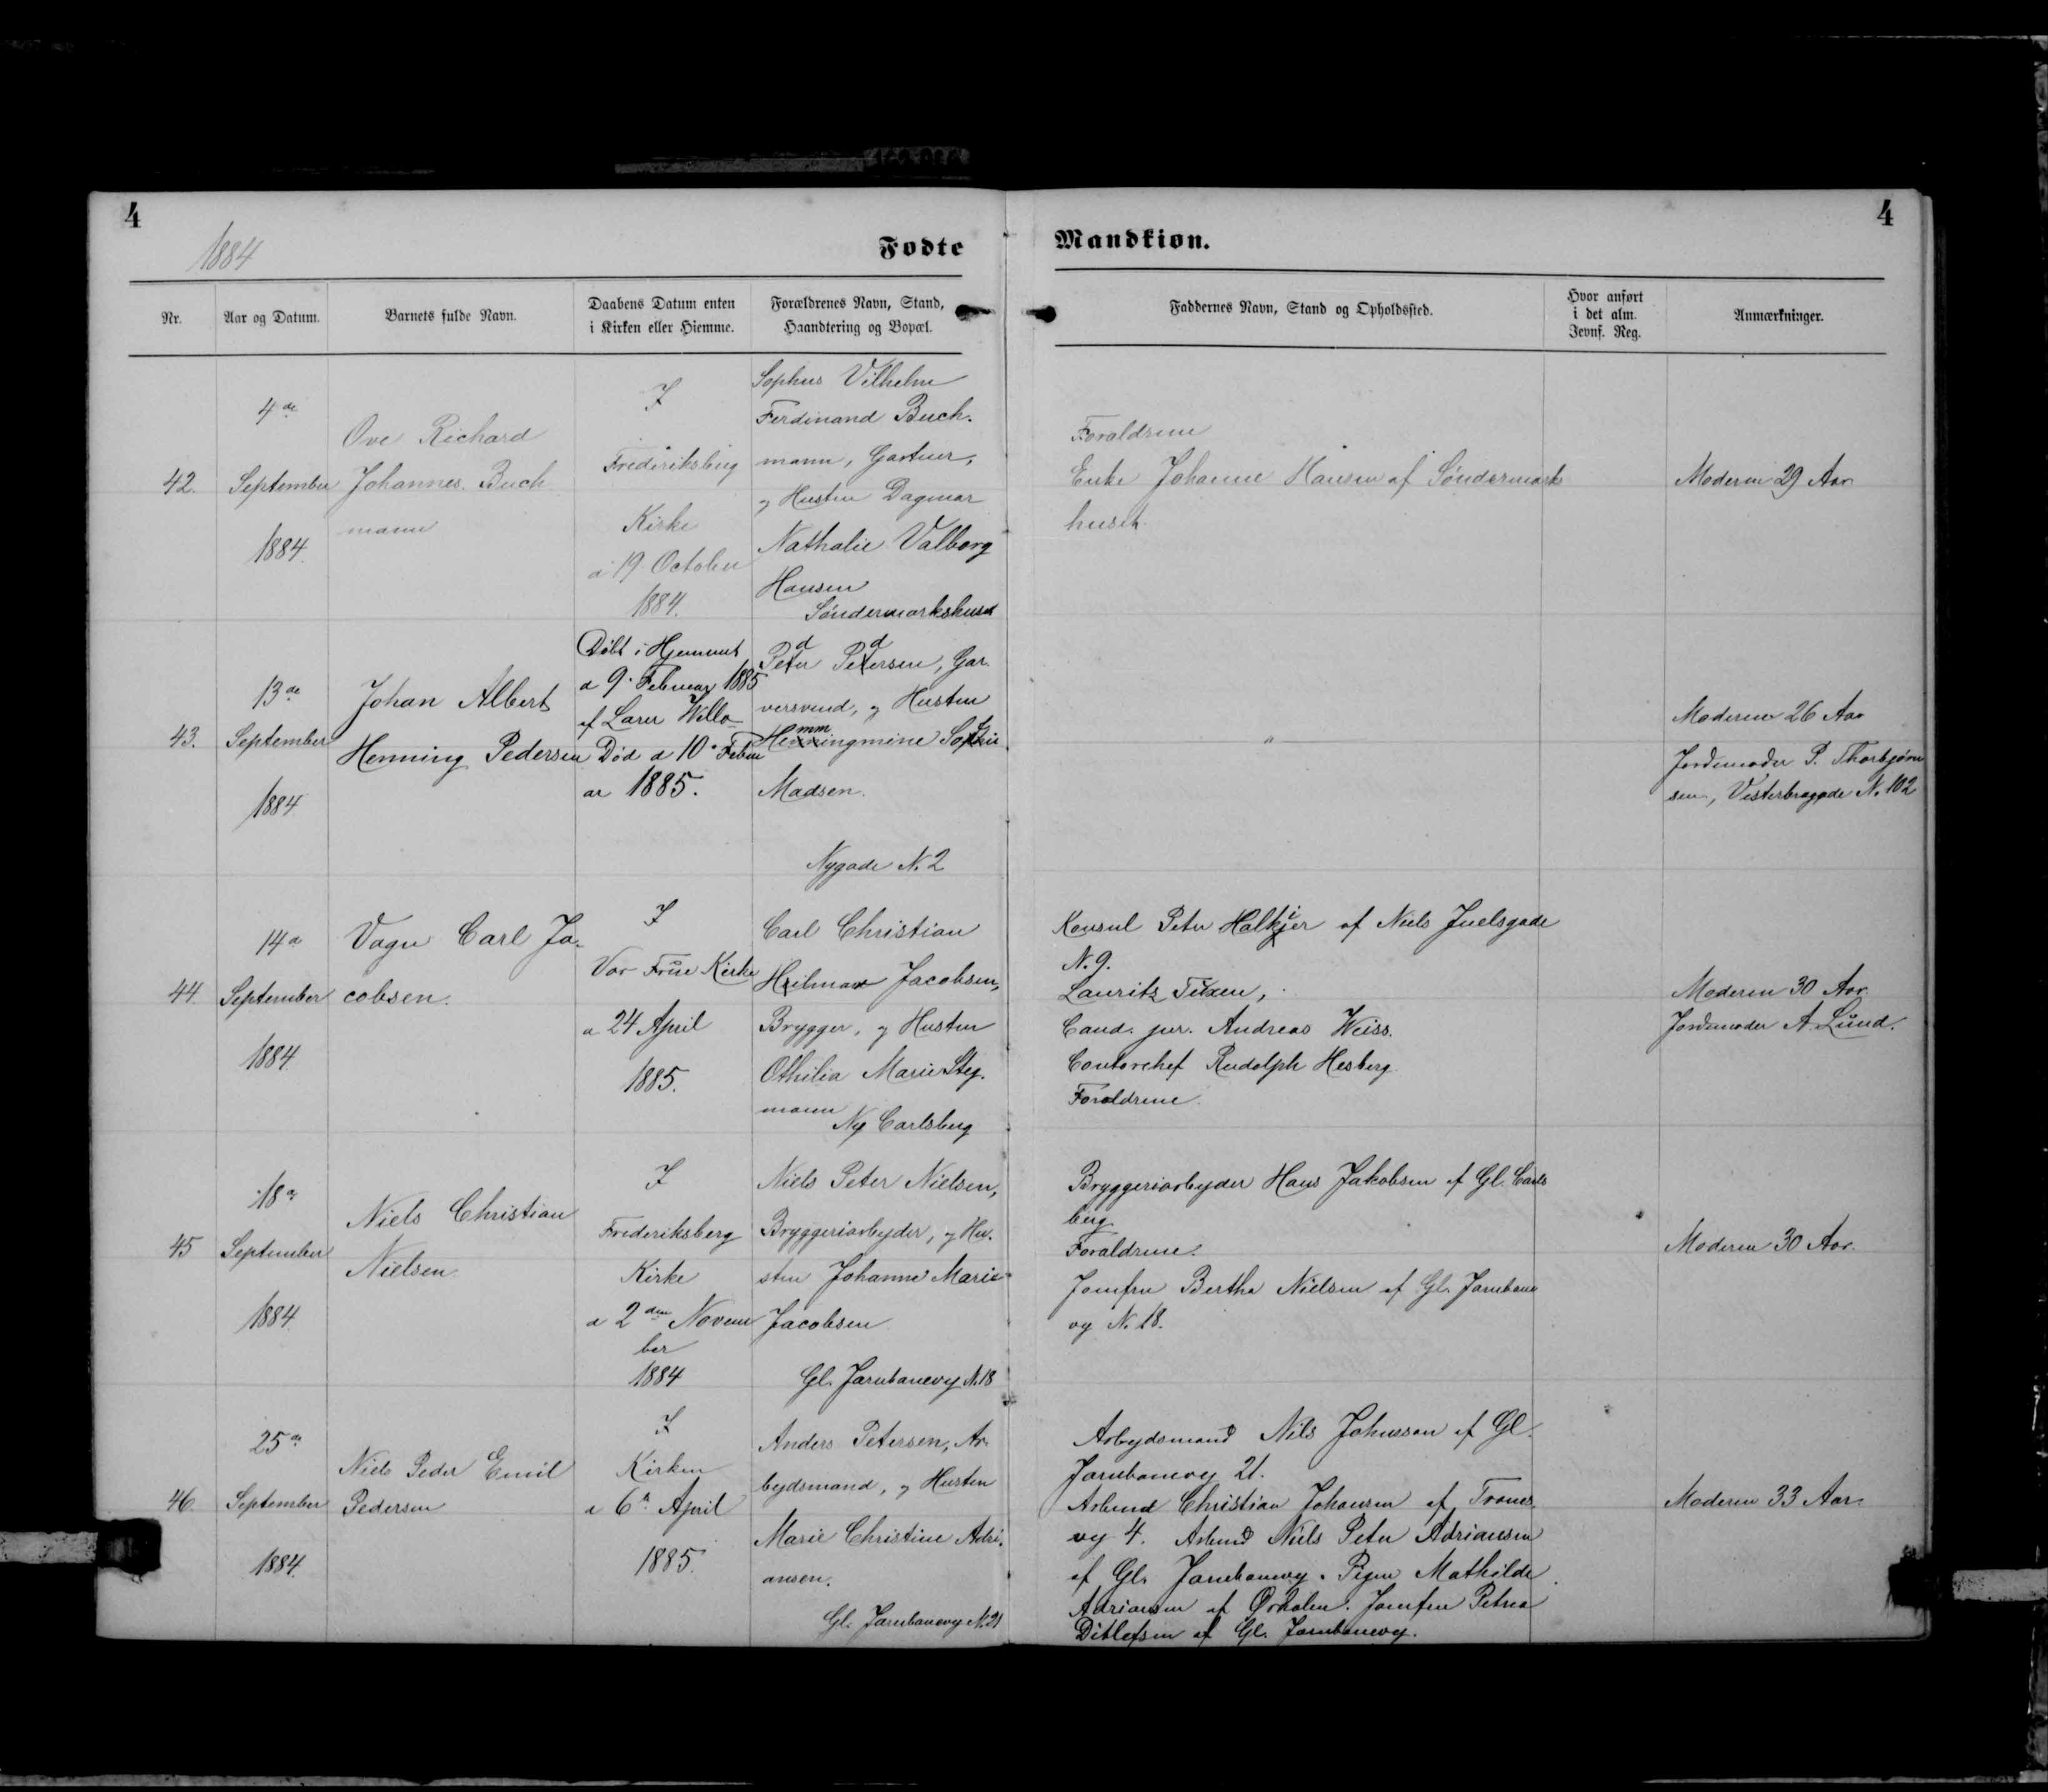 4
4
1884
Fødte
Mandkiøn.
Nr.
Aar og Datum.
Barnets fulde Navn.
Daabens Datum enten
i Kirken eller Hiemme.
Forældrenes Navn, Stand,
Haandtering og Bopæl.
Faddernes Navn, Stand og Opholdssted.
Hvor anført
i det alm.
Jevnf. Reg.
Anmærkninger.
42.
4de
September
1884.
Ove Richard
Johannes Buch
mann
I
Frederiksberg
Kirke
d 19 October
1884.
Sophus Vilhelm
Ferdinand Buch.
mann, Gartner,
og Hustru Dagmar
Nathalie Valborg
Hansen
Søndermarkshuset
Forældrene
Enke Johanne Hansen af Søndermarks
huset.
Moderen 29 Aar
43.
13de
September
1884
Johan Albert
Henning Pedersen
Døbt i Hjemmet
d 9. Februar 1885
af Lærer Willo
Død d 10. Febru
ar 1885.
Peter Petersen, Gar
versvend, og Hustru
Henningmine Sophie
Madsen.
Nygade N. 2
"
Moderen 26 Aar
Jordemoder P. Thorbjørn
sen, Vesterbrogade N. 102
44.
14d
September
1884
Vagn Carl Ja-
cobsen.
I
Vor Frue Kirke
d 24 April
1885.
Carl Christian
Hilmar Jacobsen,
Brygger, og Hustru
Othilia Marie Steg.
mann
Ny Carlsberg
Konsul Peter Halkier af Niels Juelsgade
N. 9.
Lauritz Tuxen,
Cand. jur. Andreas Weiss.
Contorchef Rudolph Hesberg
Forældrene.
Moderen 30 Aar.
Jordemoder A. Lund.
45
18d
September
1884
Niels Christian
Nielsen.
I
Frederiksberg
Kirke
d 2den Novem
ber
1884
Niels Peter Nielsen,
Bryggeriarbejder, og Hu-
stru Johanne Marie
Jacobsen
Gl. Jernbanevej N. 18
Bryggeriarbejder Hans Jakobsen af Gl. Carls
berg
Forældrene.
Jomfru Bertha Nielsen af Gl. Jernbane
vej N. 18.
Moderen 30 Aar.
46.
25d
September
1884.
Niels Peder Emil
Pedersen
I
Kirken
d 6d April
1885.
Anders Petersen, Ar-
bejdsmand, og Hustru
Marie Christine Adri-
ansen.
Gl. Jernbanevej N. 21
Arbejdsmand Nils Johnsson af Gl.
Jernbanevej 21.
Arbmd Christian Johansen af
vej 4. Arbmd Niels Peter Adriansen
af Gl. Jernbanevej. Pigen Mathilde
Adriansen af Ørholm. Jomfru Petrea
Ditlefsen af Gl. Jernbanevej.
Moderen 33 Aar.